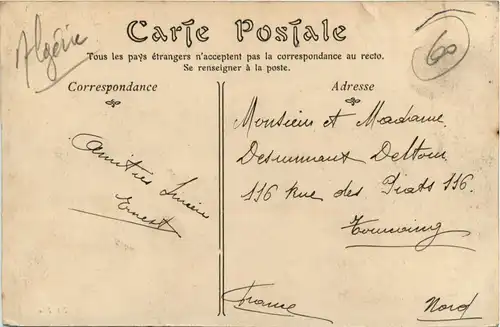 Algérie
60
Carte Postale
Tous les pays étrangers n'acceptent pas la correspondance au recto.
Se renseigner à la poste.
Correspondance
Adresse
Amitiés
Ernest
Monsieur et Madame
Desurmaux Deltour
116 Rue des Piats 116
Tourcoing
France
Nord